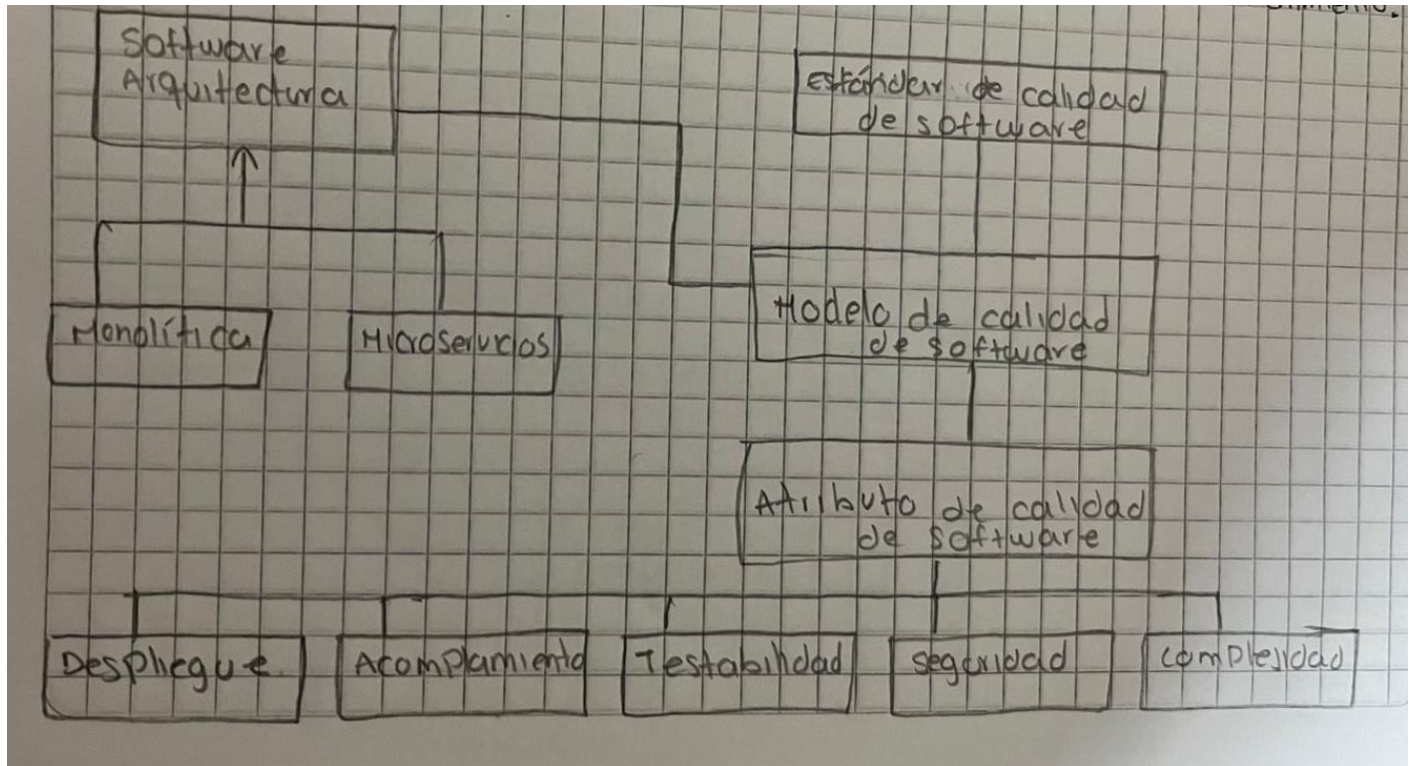 Software
Arquitectura
Estándar de calidad
de software
Monolítica
Microservicios
Modelo de calidad
de software
Atributo de calidad
de software
Despliegue
Acomplamiento
Testabilidad
seguridad
complejidad